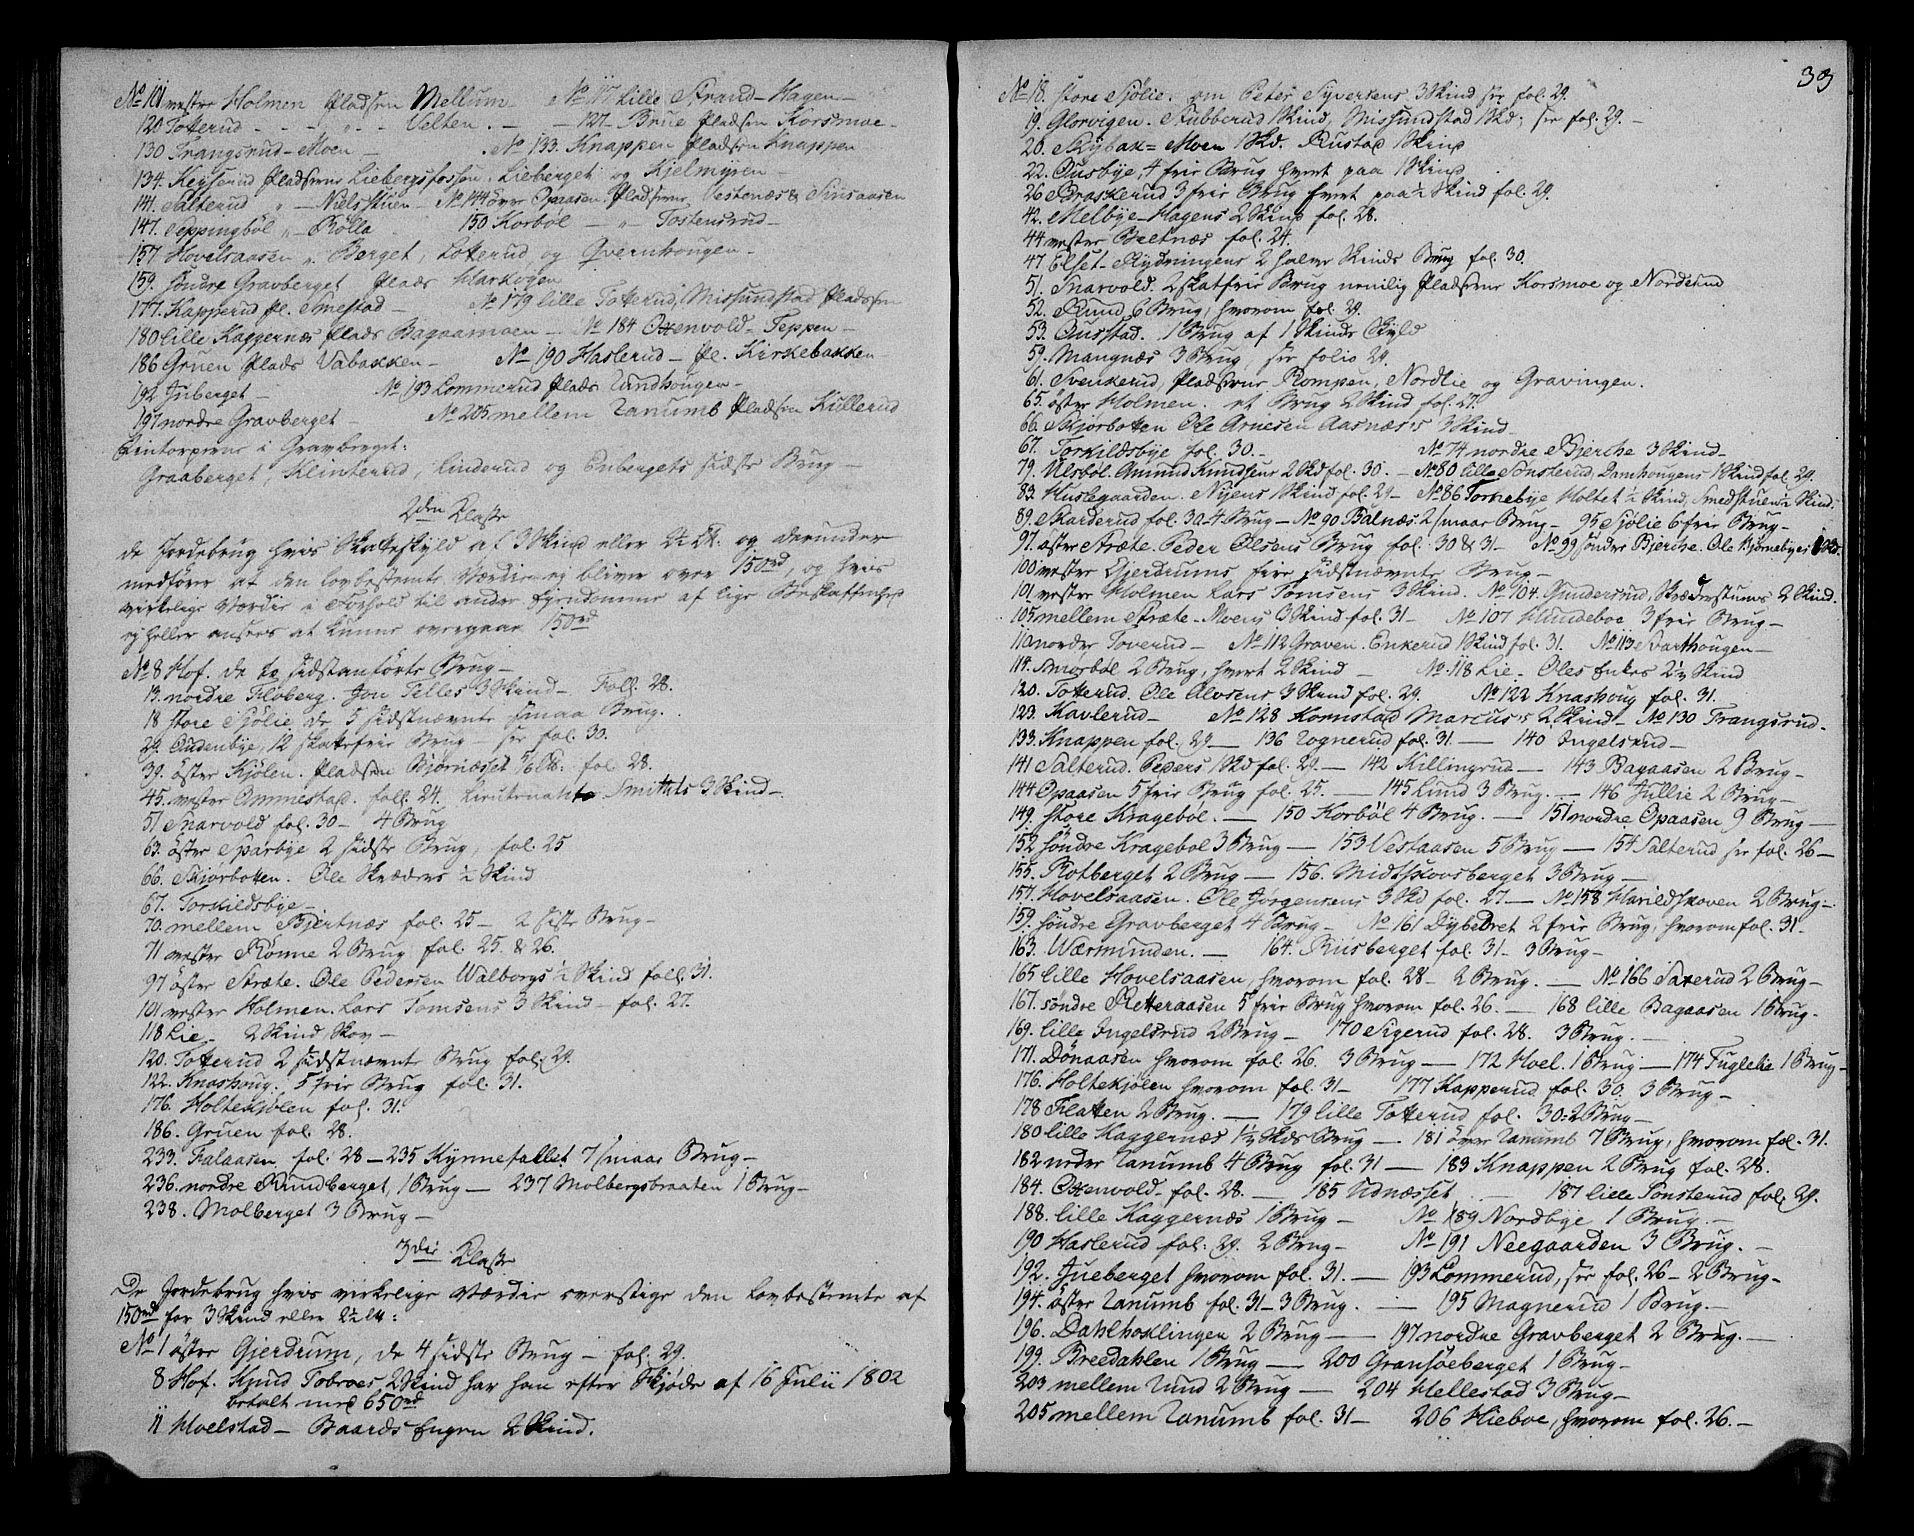 No 101 vestre Holmen Pladsen Mellum - No 117 Lille Strand - Hagen -
120 Totterud - - - „ - - Velten . - - 127 - Brue Pladsen Korsmoe -
130 Trangsrud - Moen - No 133. Knappen Pladsen Knappen
134. Keyserud Pladserne Liebergsfossen, Lieberget og Kjelmyren -
141. Salterud „ - Nielsstuen - No 144 över Opaasen. Pladserne Vestenæs & Finsaasen
147. Teppingböl „ - Rölla 150 Korböl - „ - Tostensrud -
157 Hovelsaasen „ Berget, Lotterud og Qvernhougen -
159. Söndre Gravberget Plads Markvigen
177. Kapperud pl. Smestad - No 179 lille Totterud, Missundstad Pladsen
180 lille Kaggernæs Plads Bagaamoen - No 184 Oxenvold - Teppen -
186 Gruen Plads Vabakken - No 190 Haslerud - Pl. Kirkebakken
192 Juberget - No 193 Lommerud Plads Lundhougen -
197 nordre Gravberget - No 205 mellem Tanumb Pladsen Kullerud
Fintorpene i Gravberget:
Graaberget, Klinterud, Linderud og Enbergets sidste Brug -
2den Klasse
de Jordebrug hvis Skatteskyld af 3 Skind eller 2½ Lb. og derunder
medfører at den lovbestemte Værdie ej bliver over 150rd, og hvis
virkelige Værdie i Forhold til andre Eyendomme af lige Beskaffenhed
ej heller ansees at kunne overgaae 150rd
No 8 Hof. de to sidstanförte Brug -
13. nordre Floberg. Jon Telles 3 Skind - Foll. 28.
18 store Sjölie de 5 sidstnævnte smaa Brug.
29. Audenbye, 12 skattefrie Brug - see fol. 30.
39. öster Kjölen. Pladsen Björnæsset fol. 28.
45. vester Ammestad. foll. 24. Lieutenant Smithts 3 Skind -
51 Snarvold fol. 30 - 4 Brug
63. öster Sparbye 2 sidste Brug, fol. 25
66. Skjorbotten. Ole Skræders ½ Skind
67. Torkildsbye -
70. mellem Bjertnæs fol. 25 - 2 siste Brug -
71 vester Rönne 2 Brug fol. 25. & 26.
97 öster Stræte. Ole Pedersen Walborgs ½ Skind foll. 31.
101 vester Holmen. Lars Tomsens 3 Skind - fol. 27.
118 Lie - 2 Skind Skov -
120. Totterud 2 sidstnævnte Brug fol. 29.
122. Knashoug. 5 frie Brug fol. 31.
176. Holtekjölen fol. 31.
186. Gruen fol. 28.
233. Falaasen fol. 28 - 235 Kynnefallet 7 smaae Brug -
236. nordre Rundberget, 1 Brug - 237 Molbergsbraaten 1 Brug -
238. Molberget 3 Brug -
3die Klasse
De Jordebrug hvis virkelige Værdie overstige den Lovbestemte af
150rd for 3 Skind eller 2½ Lb:
No 1 öster Gjerdrum, de 4 sidste Brug - fol. 29.
8 Hof. Knud Tobroes 2 Skind har han efter Skjöde af 16 Julii 1802
betalt med 650rd
11 Moelstad - Baards Engen 2 Skind.
33
No 18. store Sjölie. om Peter Syversens 3 Skind see fol. 29.
19. Glorvigen. Stubberud 1 Skind, Missundstad 1 Skd; see fol. 29. -
20. Skybak = Moen 1 Skd. Rustad 1 Skind
22. Ausbye, 4 frie Brug hvert paa 1 Skind
26 Braskerud 3 frie Brug hvert paa ½ Skind fol. 29.
42. Melbye - Hagens 2 Skind fol. 28.
44 vester Beltnæs fol. 24.
47 Elset - Rydningens 2 halve Skinds Brug fol. 30.
51. Snarvold. 2 skatfrie Brug nemlig Pladserne Korsmoe og Nordsrud
52. Rund 6 Brug, hvorom fol. 29.
53. Ausstad. 1 Brug af 1 Skinds Skyld
59. Mangnæs 3 Brug see folio 29.
61. Svenkerud, Pladserne Rompen, Nordlie og Gravingen.
65. öster Holmen. et Brug 2 Skind fol. 27.
66. Skjorbotten Ole Arnesen Aasnæs's 3 Skind -
67. Torkildsbye fol. 30. - No 74 nordre Bjerche 3 Skind -
79. Ulsböl. Amund Knudsens 2 Skd fol. 30. - No 80 lille Tönsterud, Damhougens 1 Skind fol. 29.
83. Huslegaarden. Nyens 1 Skind fol. 29 - No 86 Torkebye Holtet ½ Skind, Smedstuen ½ Skind.
89. Skarderud fol. 30 - 4 Brug - No 90 Balnæs. 2 smaae Brug - 95 Sjölie 6 frie Brug -
97. öster Stræte. Peder Olsens Brug fol. 30 & 31 - No 99 sönder Bjerche. Ole Bjørnebyes
100 vester Gjerdrums fire sidstnævnte Brug -
101 vester Holmen Lars Tomsens 3 Skind. No 104. Gundersrud, Skræderstuens 2 Skind.
105 mellem Stræte - Moens 3 Skind fol. 31 - No 107 Hundeboe 3 frie Brug -
110 nordre Toverud - No 112 Graven. Enkerud 1 Skind fol. 31. No 113 Svarthougen -
114. Smörböl 2 Brug, hvert 2 Skind - No 118 Lie - Oles Enkes 2½ Skind
120. Totterud. Ole Alvsens 3 Skind fol. 29. No 122 Knashoug fol. 31.
123. Kavlerud - No 128 Kornstad Marcus's 2 Skind - No 130 Trangsrud -
133. Knappen fol. 29 - 136 Rognerud fol. 31. - 140 Ingelsrud -
141 Salterud. Peders 1 Skd fol. 29. - 142 Killingrud - 143 Bagaasen 2 Brug -
144 Opaasen 5 frie Brug fol. 25. - 145 Lund 3 Brug. - 146 Jullie 2 Brug -
149. store Krageböl. - 150 Korböl 4 Brug. - 151 nordre Opaasen 9 Brug -
152 söndre Kragebol 3 Brug - 153 Vestaasen 5 Brug - 154 Salterud see fol. 26 -
155. Rotberget 2 Brug - 156. Midtskovsberget 3 Brug -
157. Hovelsaasen. Ole Jörgensens 3 Skd fol. 27. - No 158 Harildskoven 2 Brug -
159. söndre Gravberget 4 Brug - No 161 Dybedret 2 frie Brug, hvorom fol. 31 -
163. Wærmunden. - 164. Riisberget fol. 31. - 3 Brug -
165 lille Hovelsaasen hvorom fol. 28 - 2 Brug. - No 166 Saterud 2 Brug -
167. söndre Retteraasen 5 frie Brug hvorom fol. 26. - 168 lille Bagaasen 1 Brug -
169. lille Ingelsrud 2 Brug - 170 Sigerud fol. 28. 3 Brug. -
171. Dönaasen hvorom fol. 26. 3 Brug - 172 Moel. 1 Brug - 174 Fuglelie 1 Brug -
176. Holtekjölen hvorom fol. 31 - 177 Kapperud fol. 30. 3 Brug -
178 Flatten 2 Brug. - 179 lille Totterud fol. 30: 2 Brug -
180 lille Kaggernæs 1½ Skds Brug - 181 över Tanumb 7 Brug, hvorom fol. 31.
182 neder Tanumb 4 Brug fol. 31 - 183 Knappen 2 Brug fol. 28.
184. Oxenvold - fol. 28. - 185 Udnæsset - 187 lille Tonsterud fol. 29.
188. lille Kaggernæs 1 Brug - No 189 Nordbye 1 Brug. -
190 Haslerud fol. 29. 2 Brug - No 191 Neegaarden 3 Brug. -
192. Jueberget hvorom fol. 31. - 193 Lommerud, see fol. 26 - 2 Brug -
194. öster Tanumb fol. 31 - 3 Brug. - 195 Magnerud 1 Brug. -
196. Dahlhoklingen 2 Brug - 197 nordre Gravberget 2 Brug. -
199. Breedahlen 1 Brug - 200 Gransöeberget 1 Brug -
203 mellem Lund 2 Brug - 204 Hellestad 3 Brug -
205 mellem Tanumb fol. 31 - 206 Hieboe, hvorom fol. 26. -